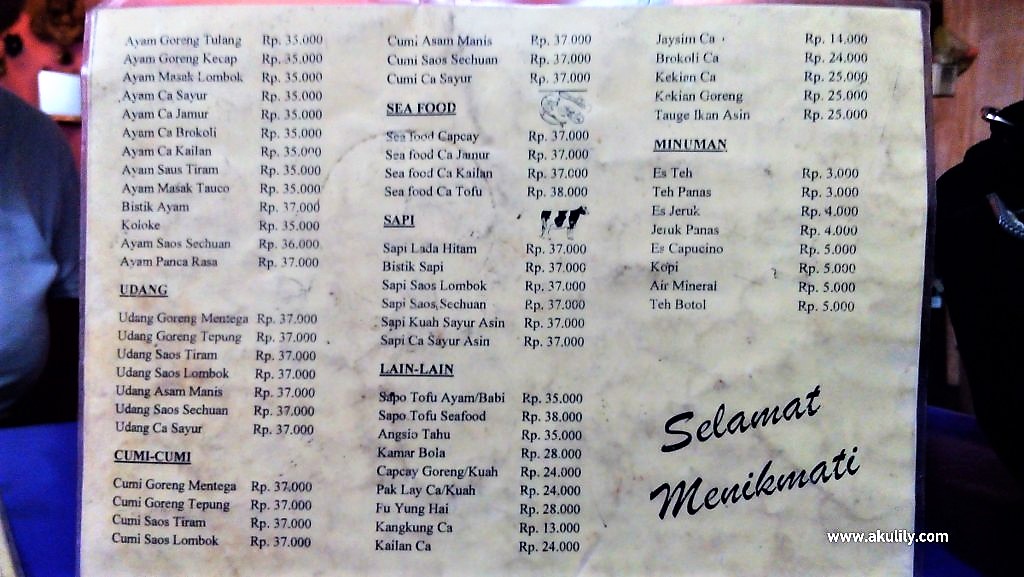 Ayam Goreng Tulang Rp. 35.000
Ayam Goreng Kecap Rp. 35.000
Ayam Masak Lombok Rp. 35.000
Ayam Ca Sayur Rp. 35.000
Ayam Ca Jamur Rp. 35.000
Ayam Ca Brokoli Rp. 35.000
Ayam Ca Kailan Rp. 35.000
Ayam Saus Tiram Rp. 35.000
Ayam Masak Tauco Rp. 35.000
Bistik Ayam Rp. 37.000
Koloke Rp. 35.000
Ayam Saos Sechuan Rp. 36.000
Ayam Panca Rasa Rp. 37.000
UDANG
Udang Goreng Mentega Rp. 37.000
Udang Goreng Tepung Rp. 37.000
Udang Saos Tiram Rp. 37.000
Udang Saos Lombok Rp. 37.000
Udang Asam Manis Rp. 37.000
Udang Saos Sechuan Rp. 37.000
Udang Ca Sayur Rp. 37.000
CUMI-CUMI
Cumi Goreng Mentega Rp. 37.000
Cumi Goreng Tepung Rp. 37.000
Cumi Saos Tiram Rp. 37.000
Cumi Saos Lombok Rp. 37.000
Cumi Asam Manis Rp. 37.000
Cumi Saos Sechuan Rp. 37.000
Cumi Ca Sayur Rp. 37.000
SEA FOOD
Sea food Capcay Rp. 37.000
Sea food Ca Jamur Rp. 37.000
Sea food Ca Kailan Rp. 37.000
Sea food Ca Tofu Rp. 38.000
SAPI
Sapi Lada Hitam Rp. 37.000
Bistik Sapi Rp. 37.000
Sapi Saos Lombok Rp. 37.000
Sapi Saos Sechuan Rp. 37.000
Sapi Kuah Sayur Asin Rp. 37.000
Sapi Ca Sayur Asin Rp. 37.000
LAIN-LAIN
Sapo Tofu Ayam/Babi Rp. 35.000
Sapo Tofu Seafood Rp. 38.000
Angsio Tahu Rp. 35.000
Kamar Bola Rp. 28.000
Capcay Goreng/Kuah Rp. 24.000
Pak Lay Ca/Kuah Rp. 24.000
Fu Yung Hai Rp. 28.000
Kangkung Ca Rp. 13.000
Kailan Ca Rp. 24.000
Jaysim Ca Rp. 14.000
Brokoli Ca Rp. 24.000
Kekian Ca Rp. 25.000
Kekian Goreng Rp. 25.000
Tauge Ikan Asin Rp. 25.000
MINUMAN
Es Teh Rp. 3.000
Teh Panas Rp. 3.000
Es Jeruk Rp. 4.000
Jeruk Panas Rp. 4.000
Es Capucino Rp. 5.000
Kopi Rp. 5.000
Air Mineral Rp. 5.000
Teh Botol Rp. 5.000
Selamat
Menikmati
www.akulily.com